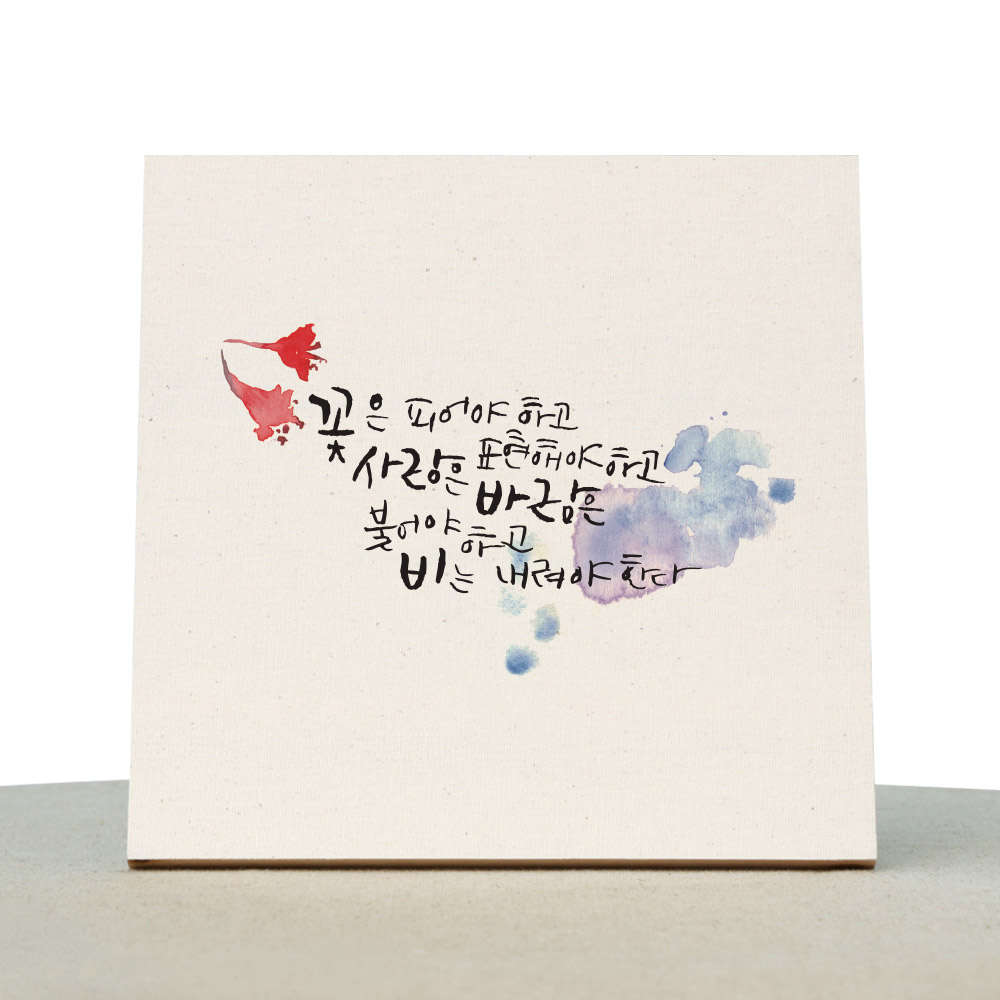 꽃은 피어야 하고
사랑은 표현해야 하고
바람은
불어야 하고
비는 내려야 한다